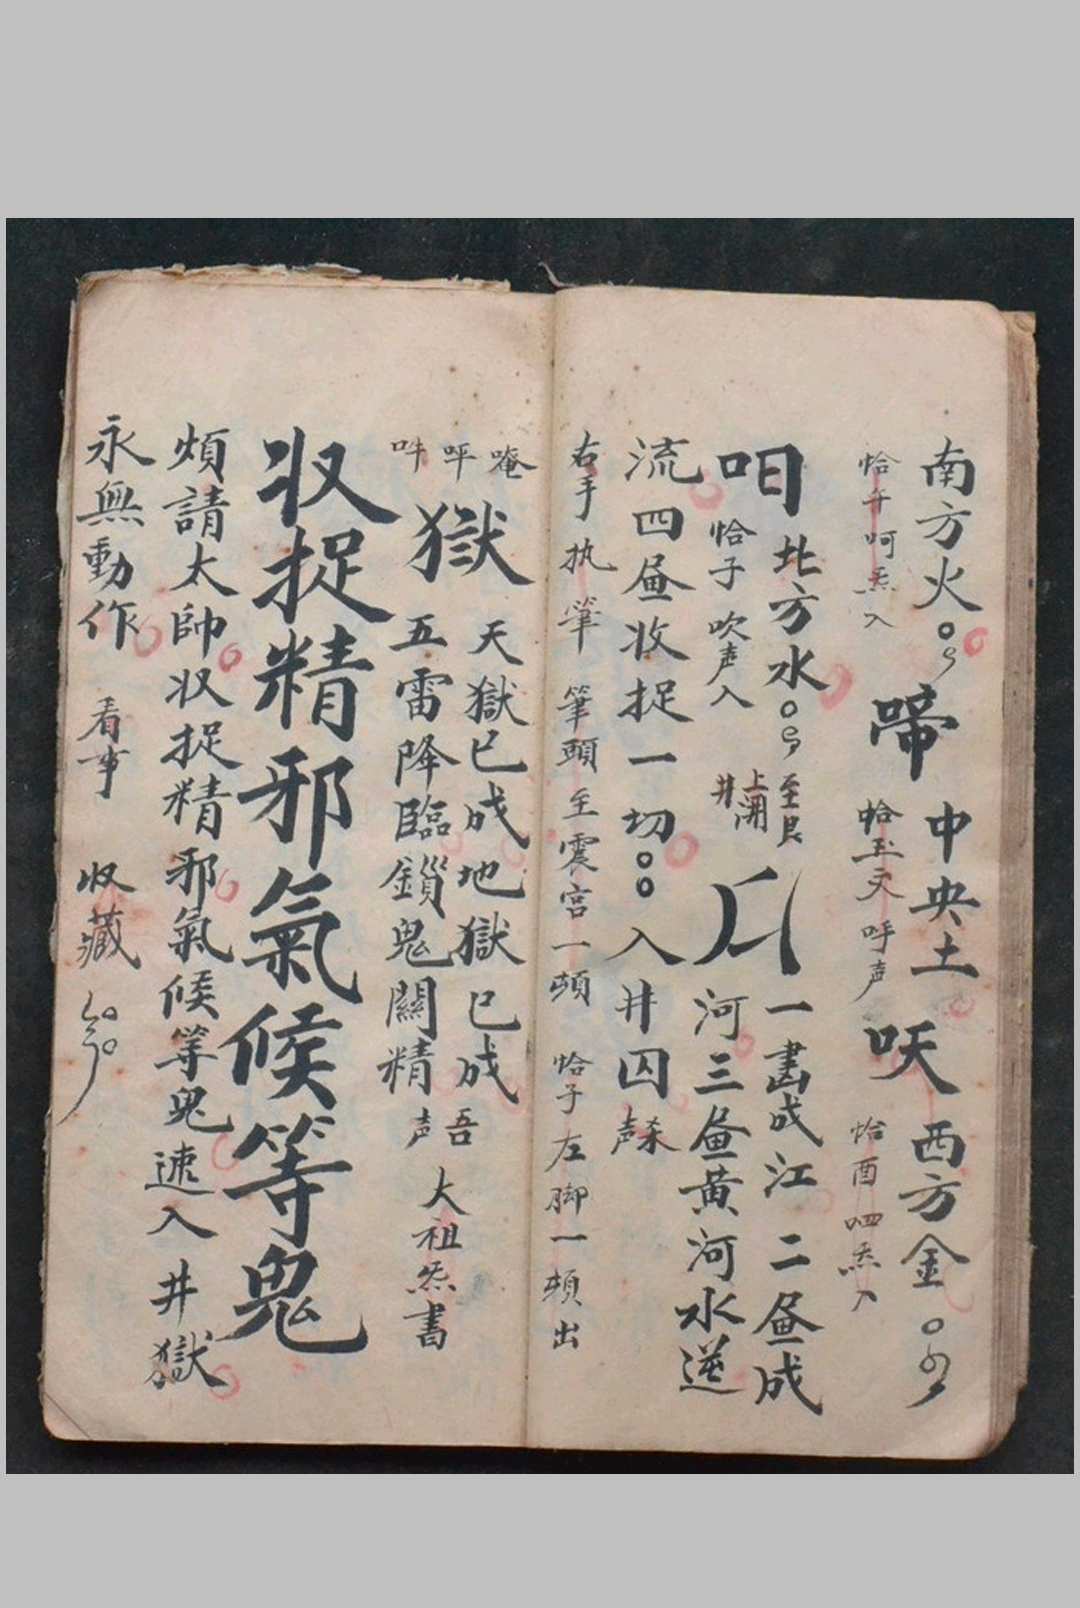 南方火
掐午呵炁入
啼
中央土
掐玉文呼声
吷
西方金
掐酉呬炁入
呾
北方水
掐子吹声入
至艮
上開
井
一畫成江二昼成
河三昼黄河水逆
流四昼收捉一切入井囚
声杀
右手执筆筆頭至震宫一頓掐子左脚一頓出
唵
呯
吽
獄
天獄已成地獄已成吾
五雷降臨鎖鬼關精声
大祖炁書
收捉精邪氣候等鬼
煩請太帥收捉精邪氣候等鬼速入井獄
永無動作看事收藏